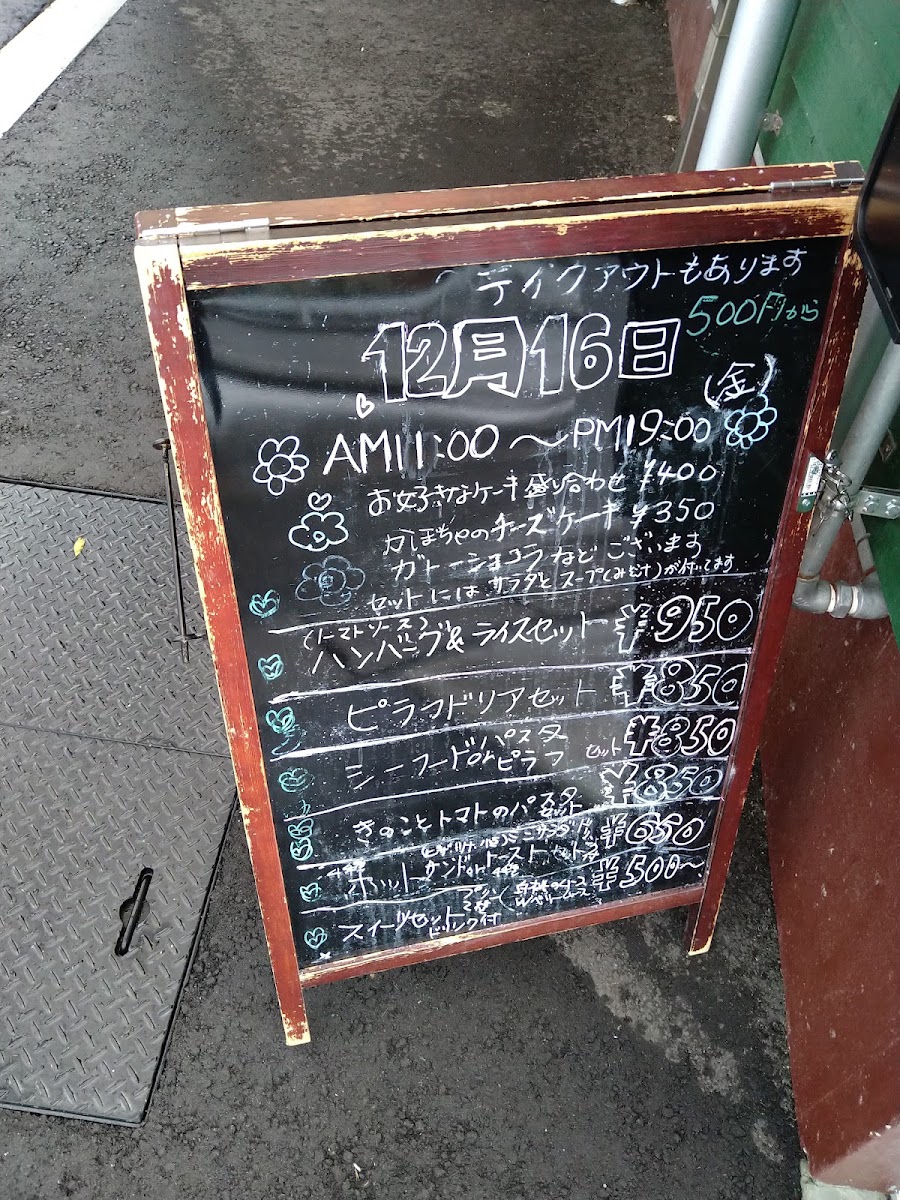 テイクアウトもあります
500円から
12月16日
(金)
AM11:00〜PM19:00
お好きなケーキ盛り合わせ ¥400
かぼちゃのチーズケーキ ¥350
ガトーショコラなどございます
セットにはサラダとスープ(みそ汁)が付いてます
(トマトソース)
ハンバーグ&ライスセット ¥950
ピラフドリアセット ¥850
シーフード パスタ or ピラフ セット ¥850
きのことトマトのパスタ セット ¥850
ホットサンド or トースト セット ¥650
スイーツセット ドリンク付 ¥500〜